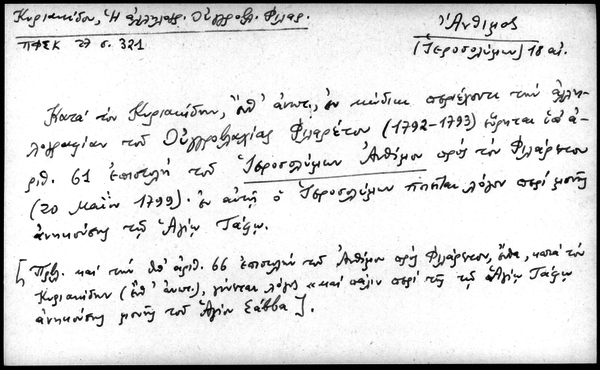 Κυριακίδου, Ἡ ἀλληλογρ. Οὐγγροβλ. Φιλαρ.
ΠΦΣΚ σ. 321
Ἄνθιμος
(Ἱεροσολύμων) 18 αἰ.
Κατὰ τὸν Κυριακίδην, ἔνθ' ἀνωτ., ἐν κώδικι περιέχοντι τὴν ἀλλη-
λογραφίαν τοῦ Οὐγγροβλαχίας Φιλαρέτου (1792-1793) εὕρηται ὑπ' ἀ-
ριθ. 61 ἐπιστολὴ τοῦ Ἱεροσολύμων Ἀνθίμου πρὸς τὸν Φιλάρετον
(20 Μαΐου 1799). ἐν αὐτῇ ὁ Ἱεροσολύμων ποιεῖται λόγον περὶ μονῆς
ἀνηκούσης τῷ Ἁγίῳ Τάφῳ.
[Πρβλ. καὶ τὴν ὑπ' ἀριθ. 66 ἐπιστολὴν τοῦ Ἀνθίμου πρὸς Φιλάρετον, ἔνθα, κατὰ τὸν
Κυριακίδην (ἔνθ' ἀνωτ.), γίνεται λόγος «καὶ πάλιν περὶ τῆς τῷ Ἁγίῳ Τάφῳ
ἀνηκούσης μονῆς τοῦ Ἁγίου Σάββα].